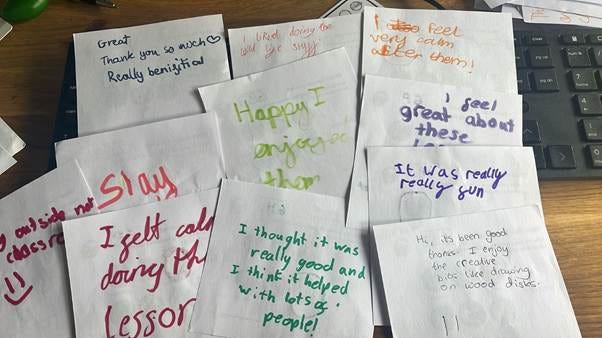 Great
Thank you so much
Really benisitial
I liked doing the
I feel
very calm
after them!
Happy I
enjoyed
them
I feel
great about
these
It was really
really fun
Slay
outside not
I felt calm
doing th
lessor
Hi
I thought it was
really good and
I think it helped
with lots of
people!
Hi, it's been good
thanks. I enjoy
the creative
bits like drawing
on wood disks.